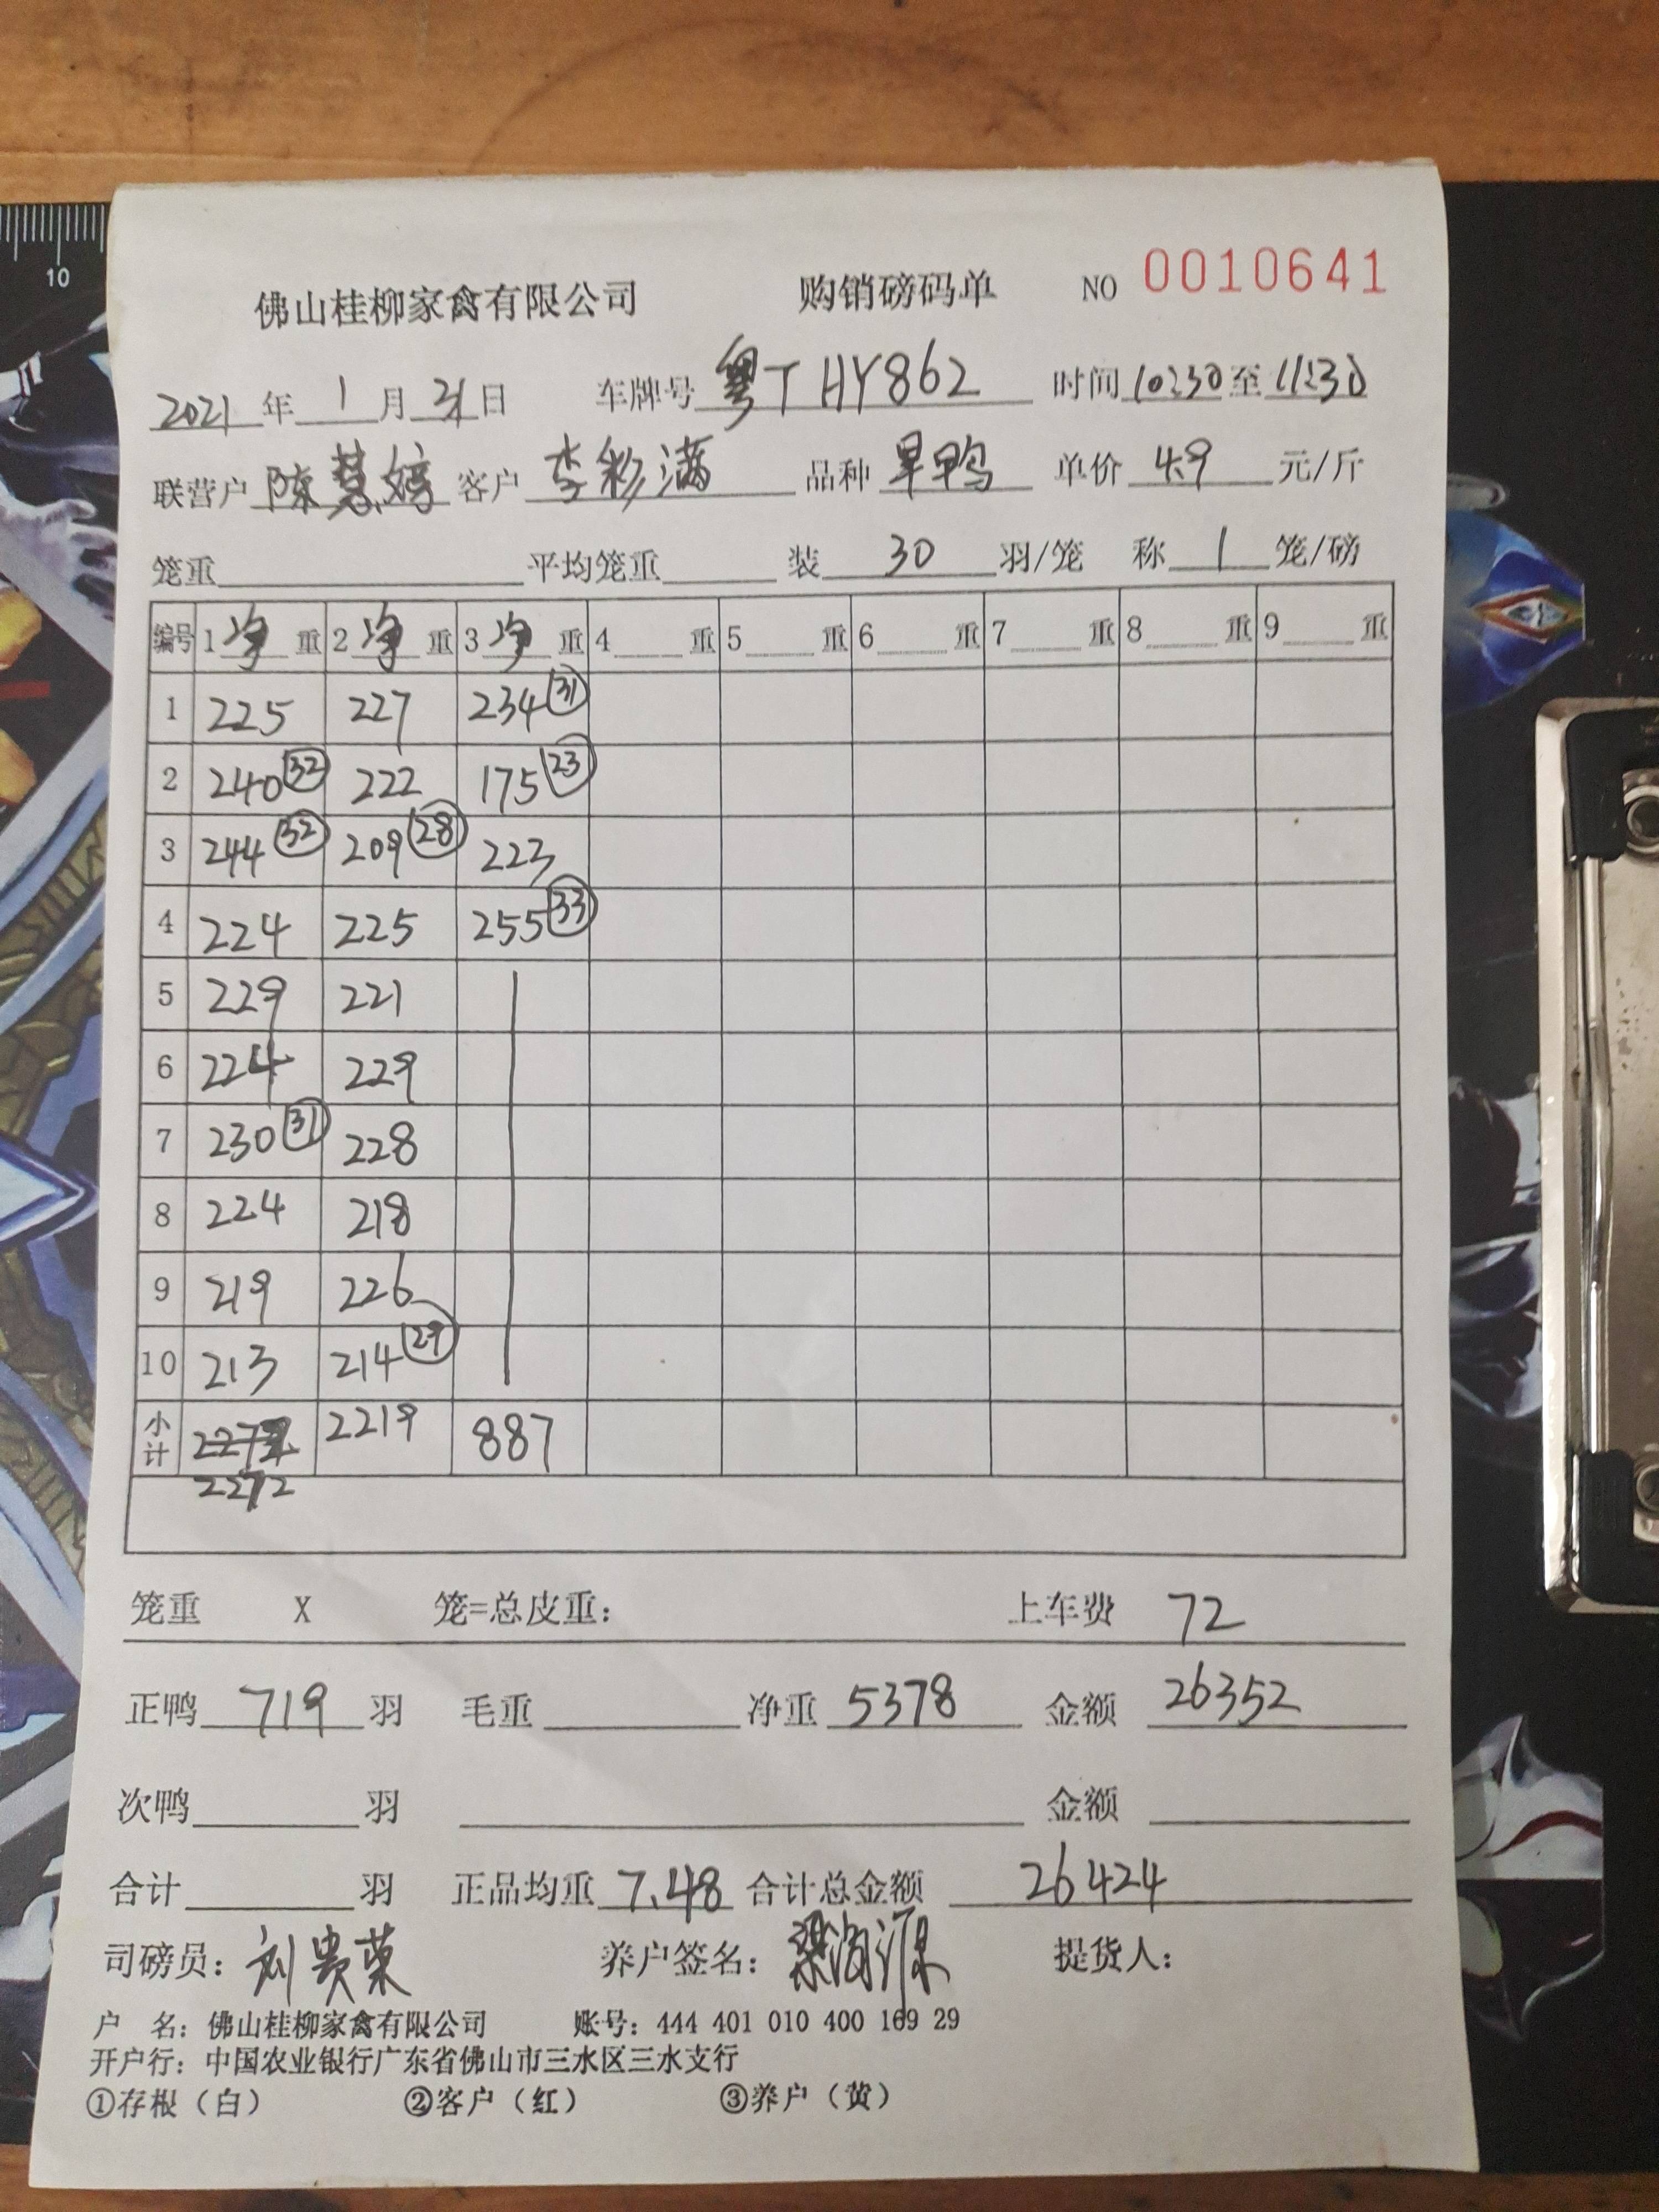 10
佛山桂柳家禽有限公司 购销磅码单 NO 0010641
2021年 1月 31日 车牌号 粤T HY862 时间 10:30 至 11:30
联营户 陈慧婷 客户 李彩满 品种 旱鸭 单价 4.9 元/斤
笼重 平均笼重 装 30 羽/笼 称 1 笼/磅
编号 1 净 重 2 净 重 3 净 重 4 重 5 重 6 重 7 重 8 重 9 重
1 225 227 234 (31)
2 240 (32) 222 175 (23)
3 244 (32) 209 (28) 223
4 224 225 255 (33)
5 229 221
6 224 229
7 230 (31) 228
8 224 218
9 219 226
10 213 214 (29)
小计 2219 887
2272
笼重 X 笼=总皮重: 上车费 72
正鸭 719 羽 毛重 净重 5378 金额 26352
次鸭 羽 金额
合计 羽 正品均重 7.48 合计总金额 26424
司磅员: 刘贵荣 养户签名: 提货人:
户 名: 佛山桂柳家禽有限公司 账号: 444 401 010 400 169 29
开户行: 中国农业银行广东省佛山市三水区三水支行
①存根（白） ②客户（红） ③养户（黄）